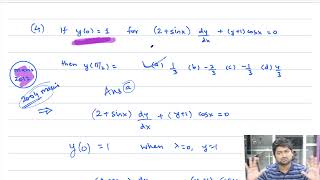 (4) If y(0) = 1 for (2+sinx) dy/dx + (y+1) cosx = 0
then y(π/2) = (a) 1/3 (b) -2/3 (c) -1/3 (d) 4/3
mains 2017
2004 mains
Ans (a)
→ (2+sinx) dy/dx + (y+1) cosx = 0
y(0) = 1 when x=0, y=1